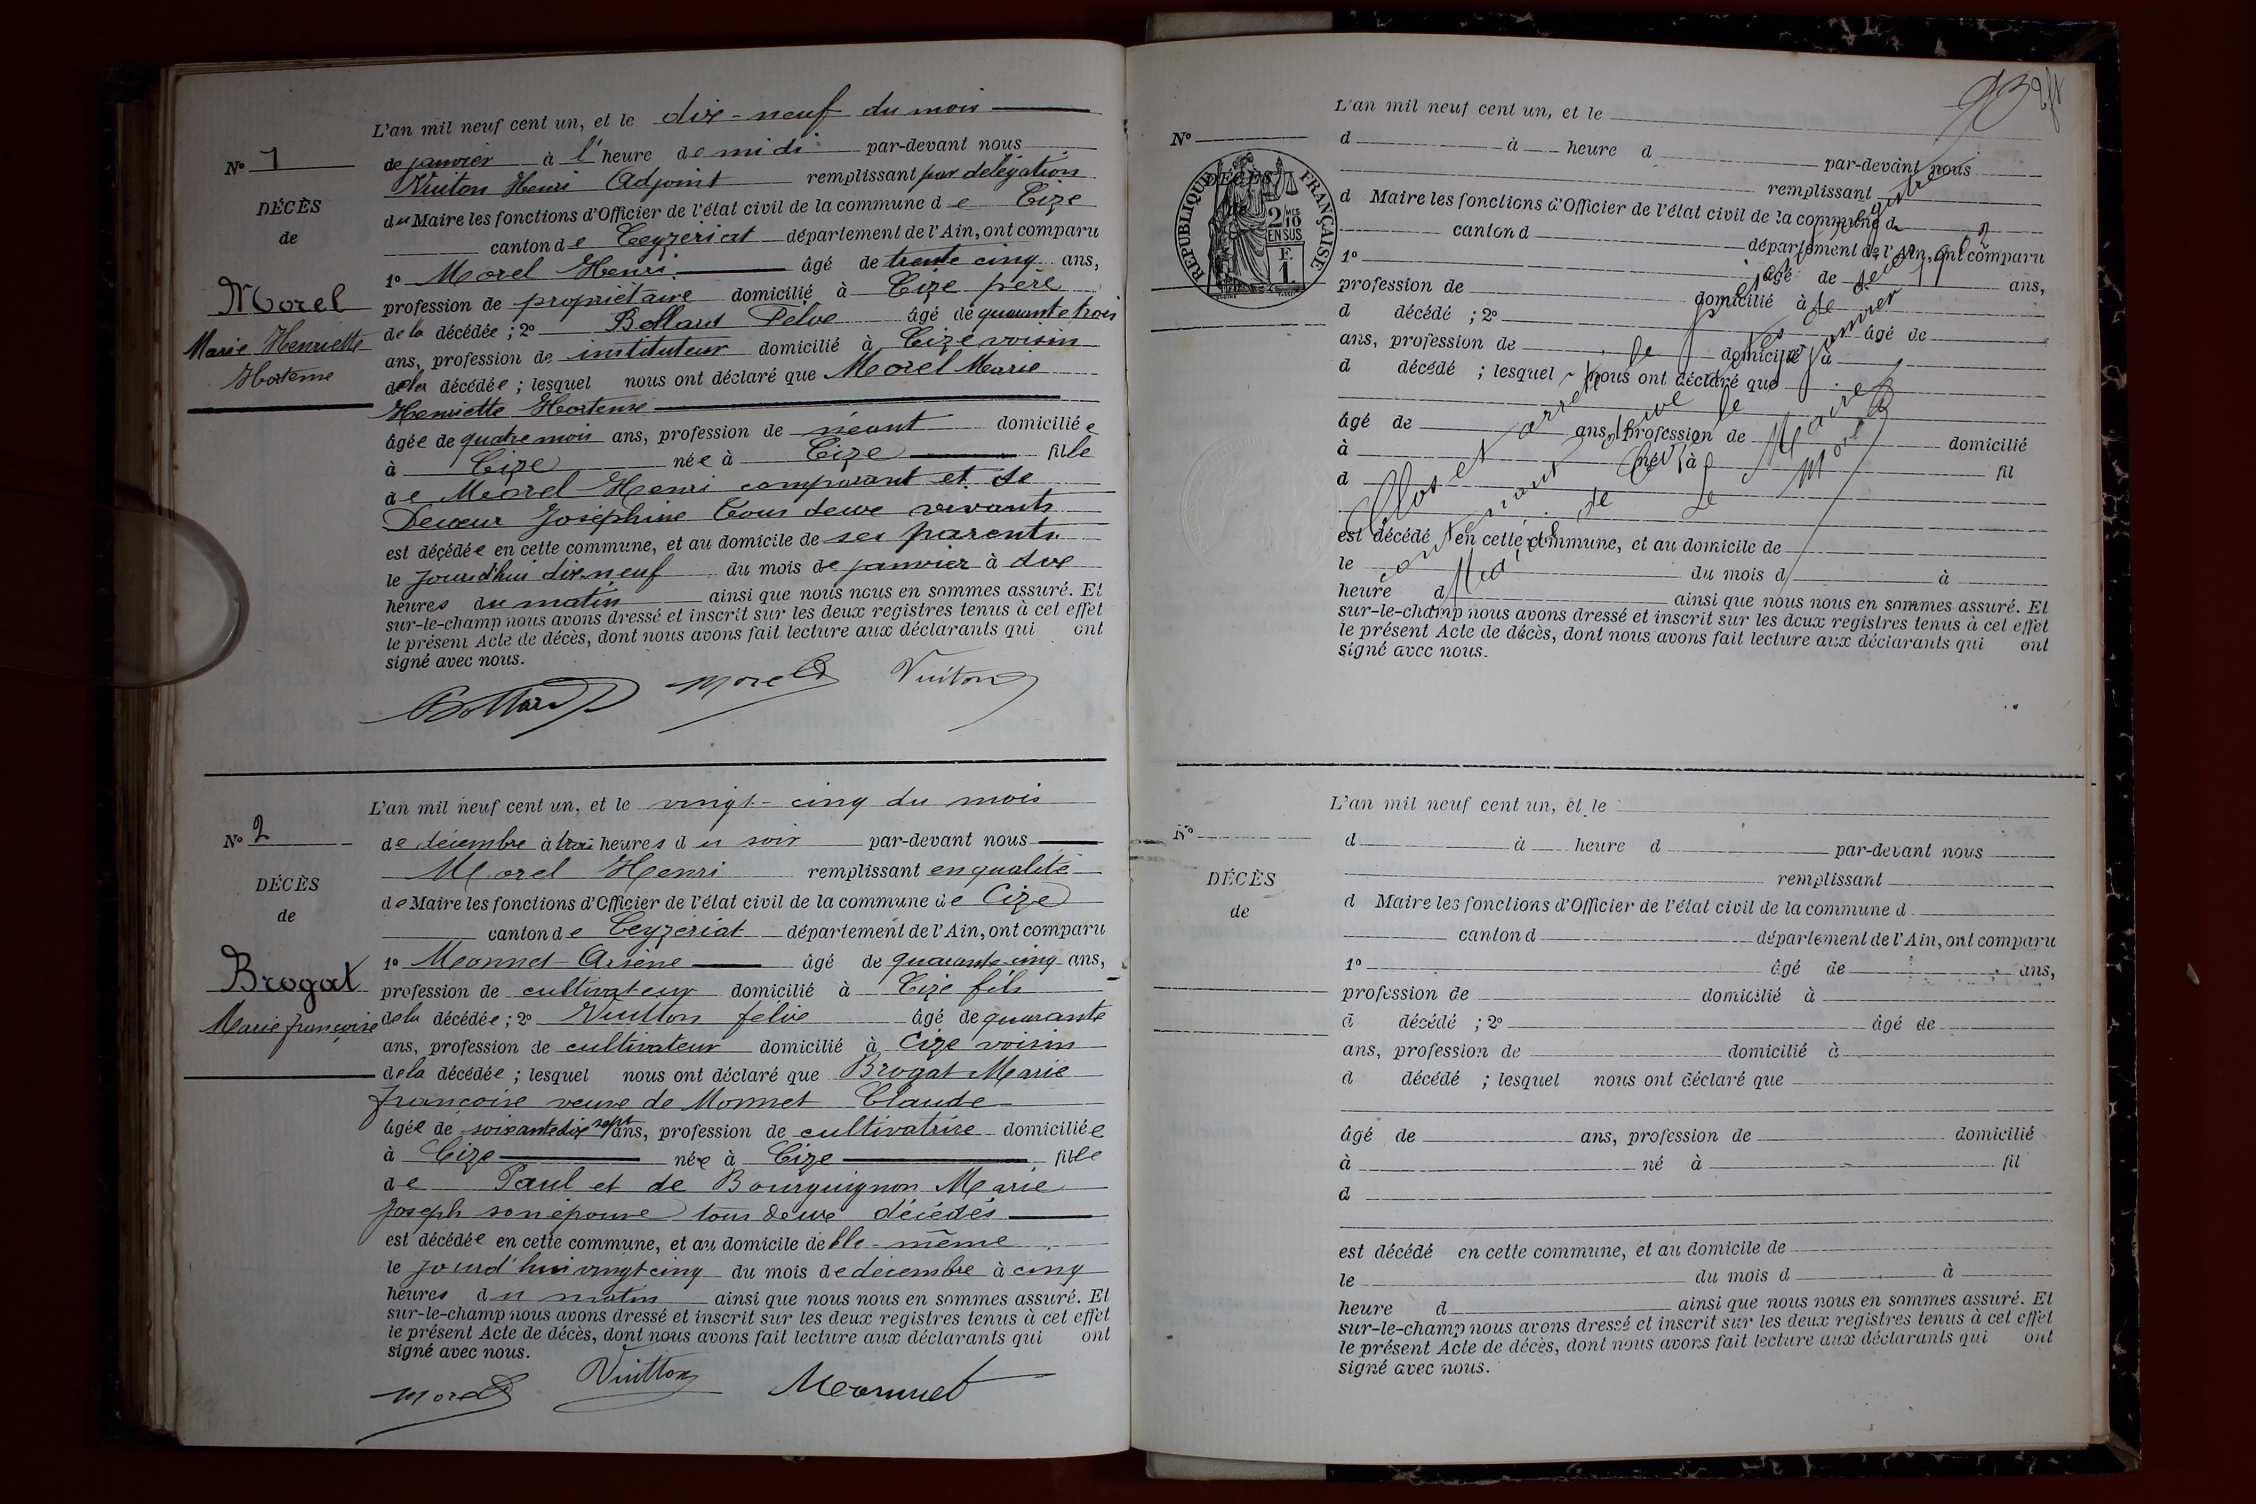 L'an mil neuf cent un, et le dix-neuf du mois
N° 1
de janvier à l'heure de midi par-devant nous
Vuiton Henri Adjoint remplissant par délégation
DÉCÈS
du Maire les fonctions d'Officier de l'état civil de la commune de Cize
de
canton de Ceyzeriat département de l'Ain, ont comparu
1° Morel Henri âgé de trente cinq ans,
Morel
profession de propriétaire domicilié à Cize père
de la décédée ; 2° Bollard âgé de quarante trois
Marie Henriette
ans, profession de instituteur domicilié à Cize voisin
Hortense
de la décédée ; lesquel nous ont déclaré que Morel Marie
Henriette Hortense
âgée de quatre mois ans, profession de néant domiciliée
à Cize née à Cize fille
de Morel Henri comparant et de
Josephine tous deux vivants
est décédée en cette commune, et au domicile de ses parents
le jourd'hui dix-neuf du mois de janvier à dix
heures du matin ainsi que nous nous en sommes assuré. Et
sur-le-champ nous avons dressé et inscrit sur les deux registres tenus à cet effet
le présent Acte de décès, dont nous avons fait lecture aux déclarants qui ont
signé avec nous.
Bollard Morel Vuiton
L'an mil neuf cent un, et le vingt-cinq du mois
N° 2
de décembre à trois heures du soir par-devant nous
Morel Henri remplissant en qualité
DÉCÈS
de Maire les fonctions d'Officier de l'état civil de la commune de Cize
de
canton de Ceyzériat département de l'Ain, ont comparu
Brogat
1° Monnet Arsène âgé de quarante-cinq ans,
profession de cultivateur domicilié à Cize fils
Marie françoise
de la décédée ; 2° Vuitton félix âgé de quarante
ans, profession de cultivateur domicilié à Cize voisin
de la décédée ; lesquel nous ont déclaré que Brogat Marie
françoise veuve de Monnet Claude
âgée de soixante dix sept ans, profession de cultivatrice domiciliée
à Cize née à Cize fille
de Paul et de Bourguignon Marie
Joseph son épouse tous deux décédés
est décédée en cette commune, et au domicile de elle-même
le jourd'hui vingt cinq du mois de decembre à cinq
heures du matin ainsi que nous nous en sommes assuré. Et
sur-le-champ nous avons dressé et inscrit sur les deux registres tenus à cet effet
le présent Acte de décès, dont nous avons fait lecture aux déclarants qui ont
signé avec nous.
Morel Vuitton Monnet
L'an mil neuf cent un, et le
N°
d à heure d par-devant nous
remplissant
DÉCÈS
RÉPUBLIQUE FRANÇAISE
2 MES 10 EN SUS
F. 1
d Maire les fonctions d'Officier de l'état civil de la commune d
canton d département de l'Ain, ont comparu
1° âgé de ans,
profession de domicilié à
d décédé ; 2° âgé de
ans, profession de domicilié à
d décédé ; lesquel nous ont déclaré que
âgé de ans, profession de domicilié
à né à fil
d
est décédé en cette commune, et au domicile de
le du mois d à
heure d ainsi que nous nous en sommes assuré. Et
sur-le-champ nous avons dressé et inscrit sur les deux registres tenus à cet effet
le présent Acte de décès, dont nous avons fait lecture aux déclarants qui ont
signé avec nous.
Clos et arrêté le présent registre
contenant deux actes de décès
de Cize le janvier
Le Maire
Morel
L'an mil neuf cent un, et le
N°
d à heure d par-devant nous
remplissant
DÉCÈS
d Maire les fonctions d'Officier de l'état civil de la commune d
de
canton d département de l'Ain, ont comparu
1° âgé de ans,
profession de domicilié à
d décédé ; 2° âgé de
ans, profession de domicilié à
d décédé ; lesquel nous ont déclaré que
âgé de ans, profession de domicilié
à né à fil
d
est décédé en cette commune, et au domicile de
le du mois d à
heure d ainsi que nous nous en sommes assuré. Et
sur-le-champ nous avons dressé et inscrit sur les deux registres tenus à cet effet
le présent Acte de décès, dont nous avons fait lecture aux déclarants qui ont
signé avec nous.